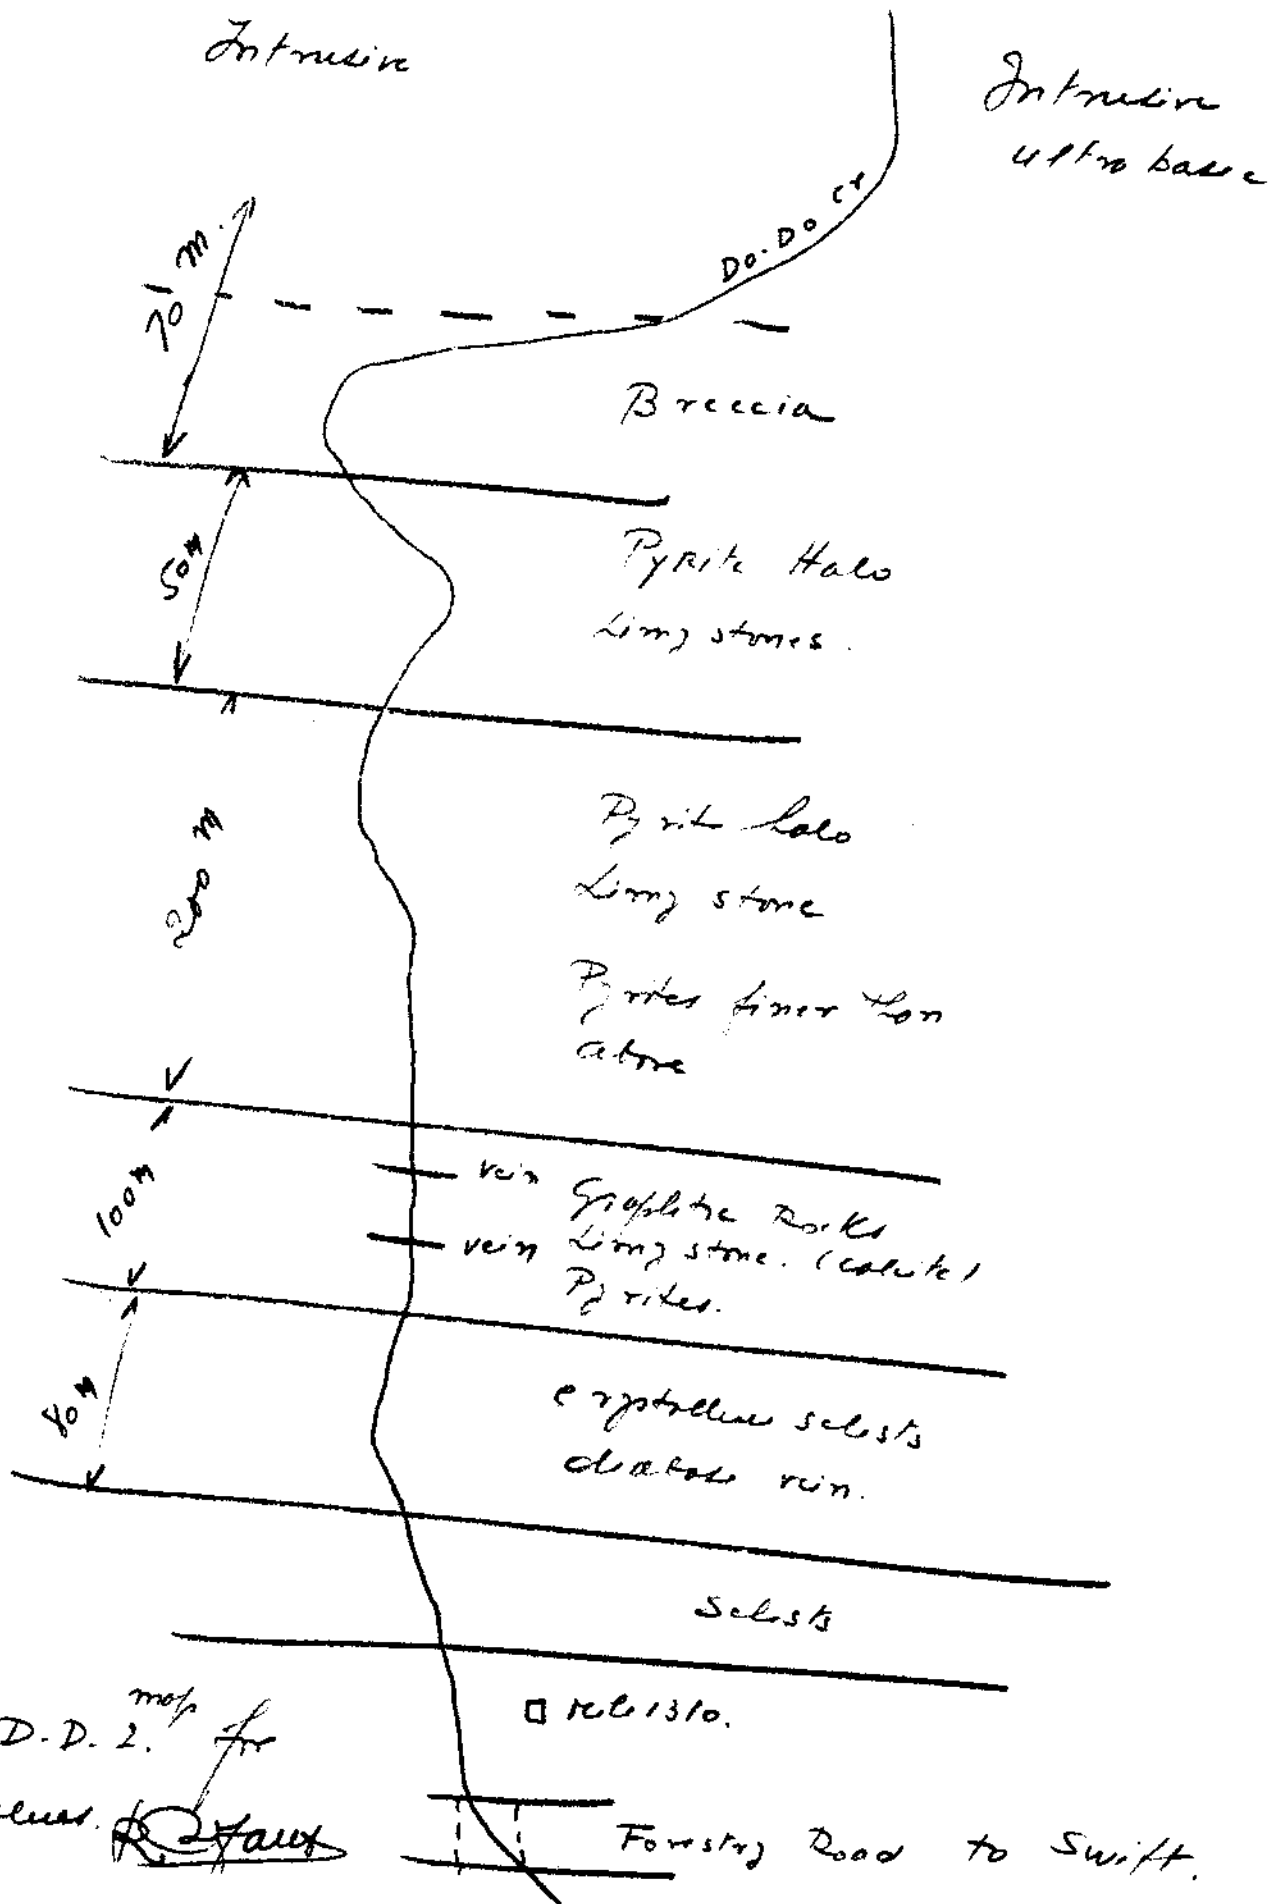 Intrusive
Intrusive
ultro basic
Do-Do cr
70 m.
Breccia
50m
Pyrite Halo
Limy stones.
200 m
Pyrite halo
Limy stone
Pyrites finer than
above
100m
vein
Graphitic Rocks
vein
Limy stone. (calcite)
Pyrites.
80m
crystalline schists
diabase vein.
Schists
1310.
map
D.D.2. for
Forestry Road to Swift.